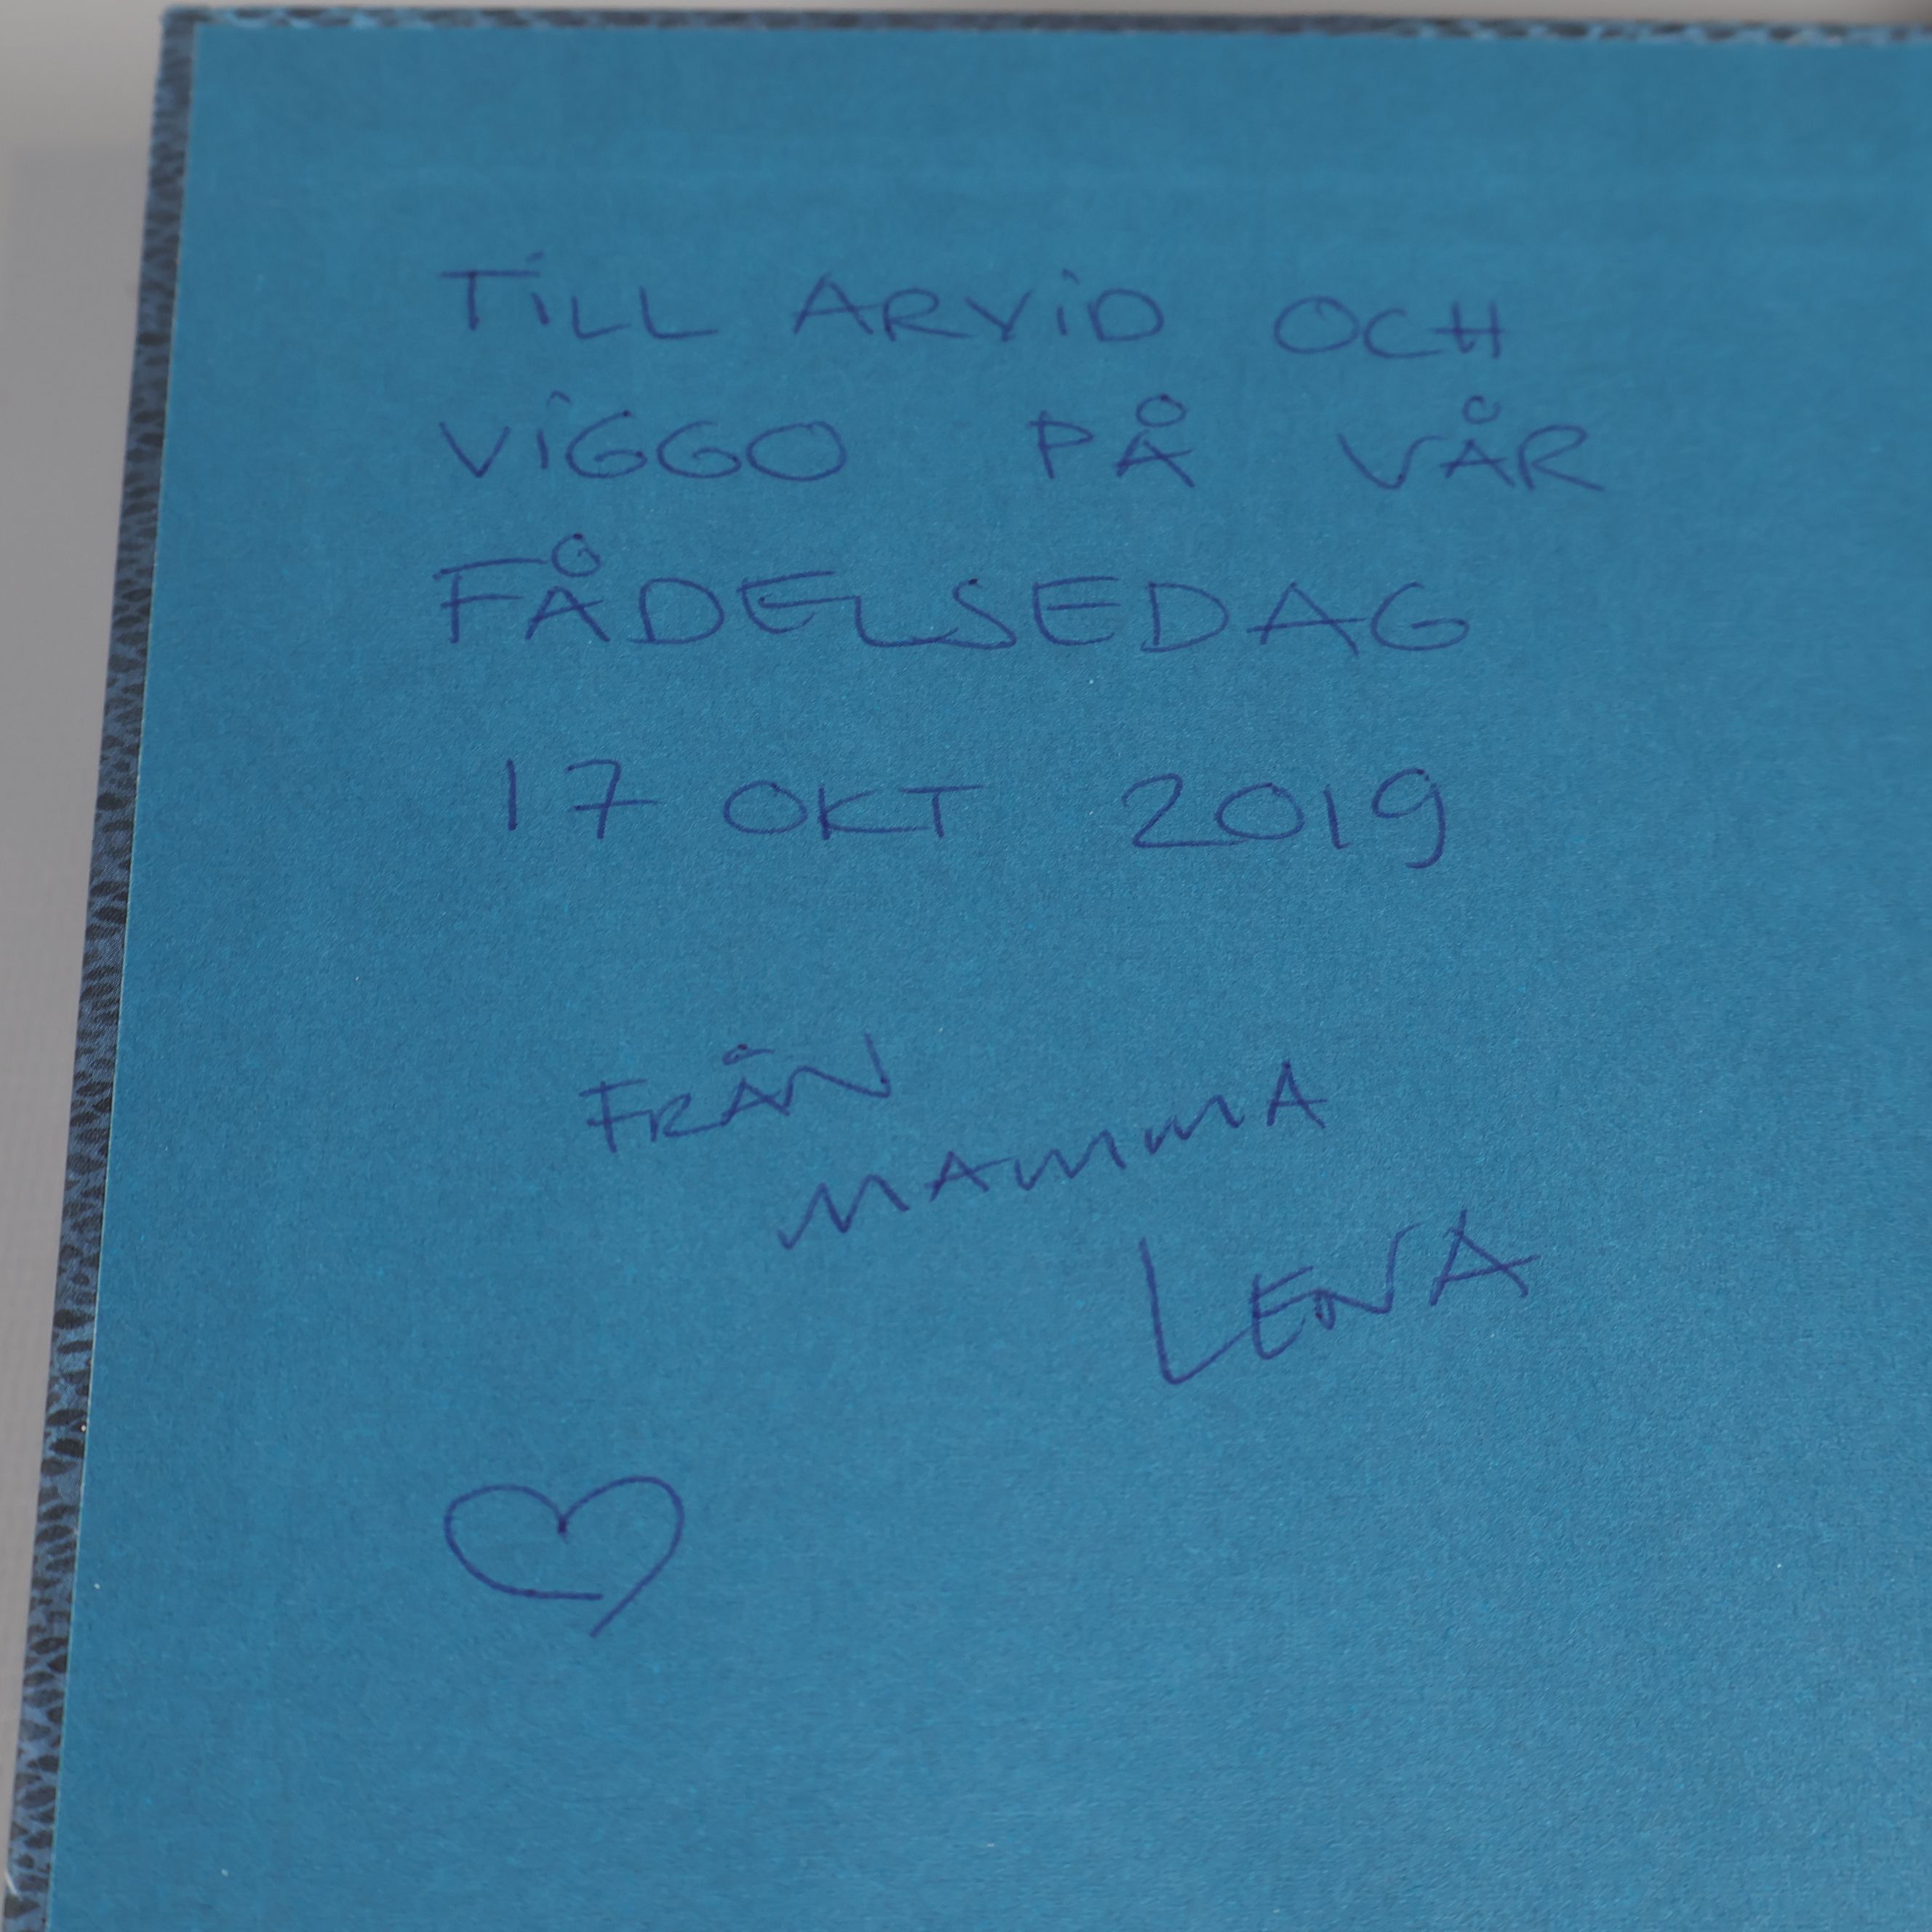 TILL ARVID OCH
VIGGO PÅ VÅR
FÅDELSEDAG
17 OKT 2019
FRÅN
MAMMA
LENA